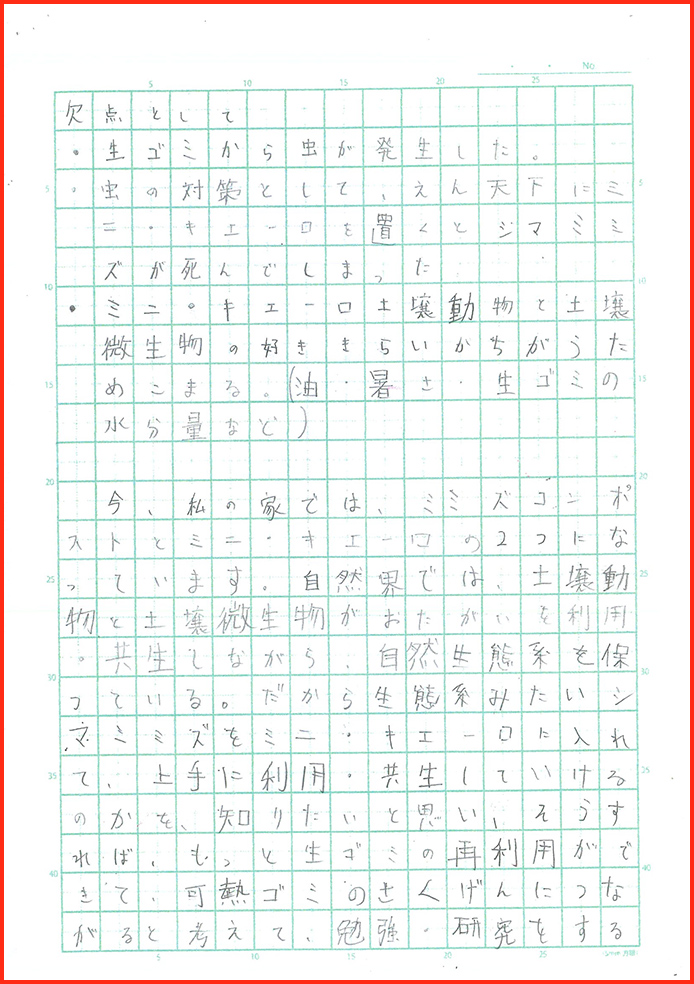 No
欠点として
・生ゴミから虫が発生した。
・虫の対策として、えん天下にミ
ニ・キエーロを置くとシマミミ
ズが死んでしまった
・ミニ・キエーロ土壌動物と土壌
微生物の好ききらいがちがうた
めこまる。(油・暑さ・生ゴミの
水分量など)
今、私の家では、ミミズコンポ
ストとミニ・キエーロの2つにな
っています。自然界では、土壌動
物と土壌微生物がおたがいを利用
・共生しながら、自然生態系を保
っている。だから生態系みたいシ
マミミズをミニ・キエーロに入れ
て、上手に利用・共生していける
のかを、知りたいと思い、そうす
れば、もっと生ゴミの再利用がで
きて、可熱ゴミのさくげんにつな
がると考えて、勉強・研究をする